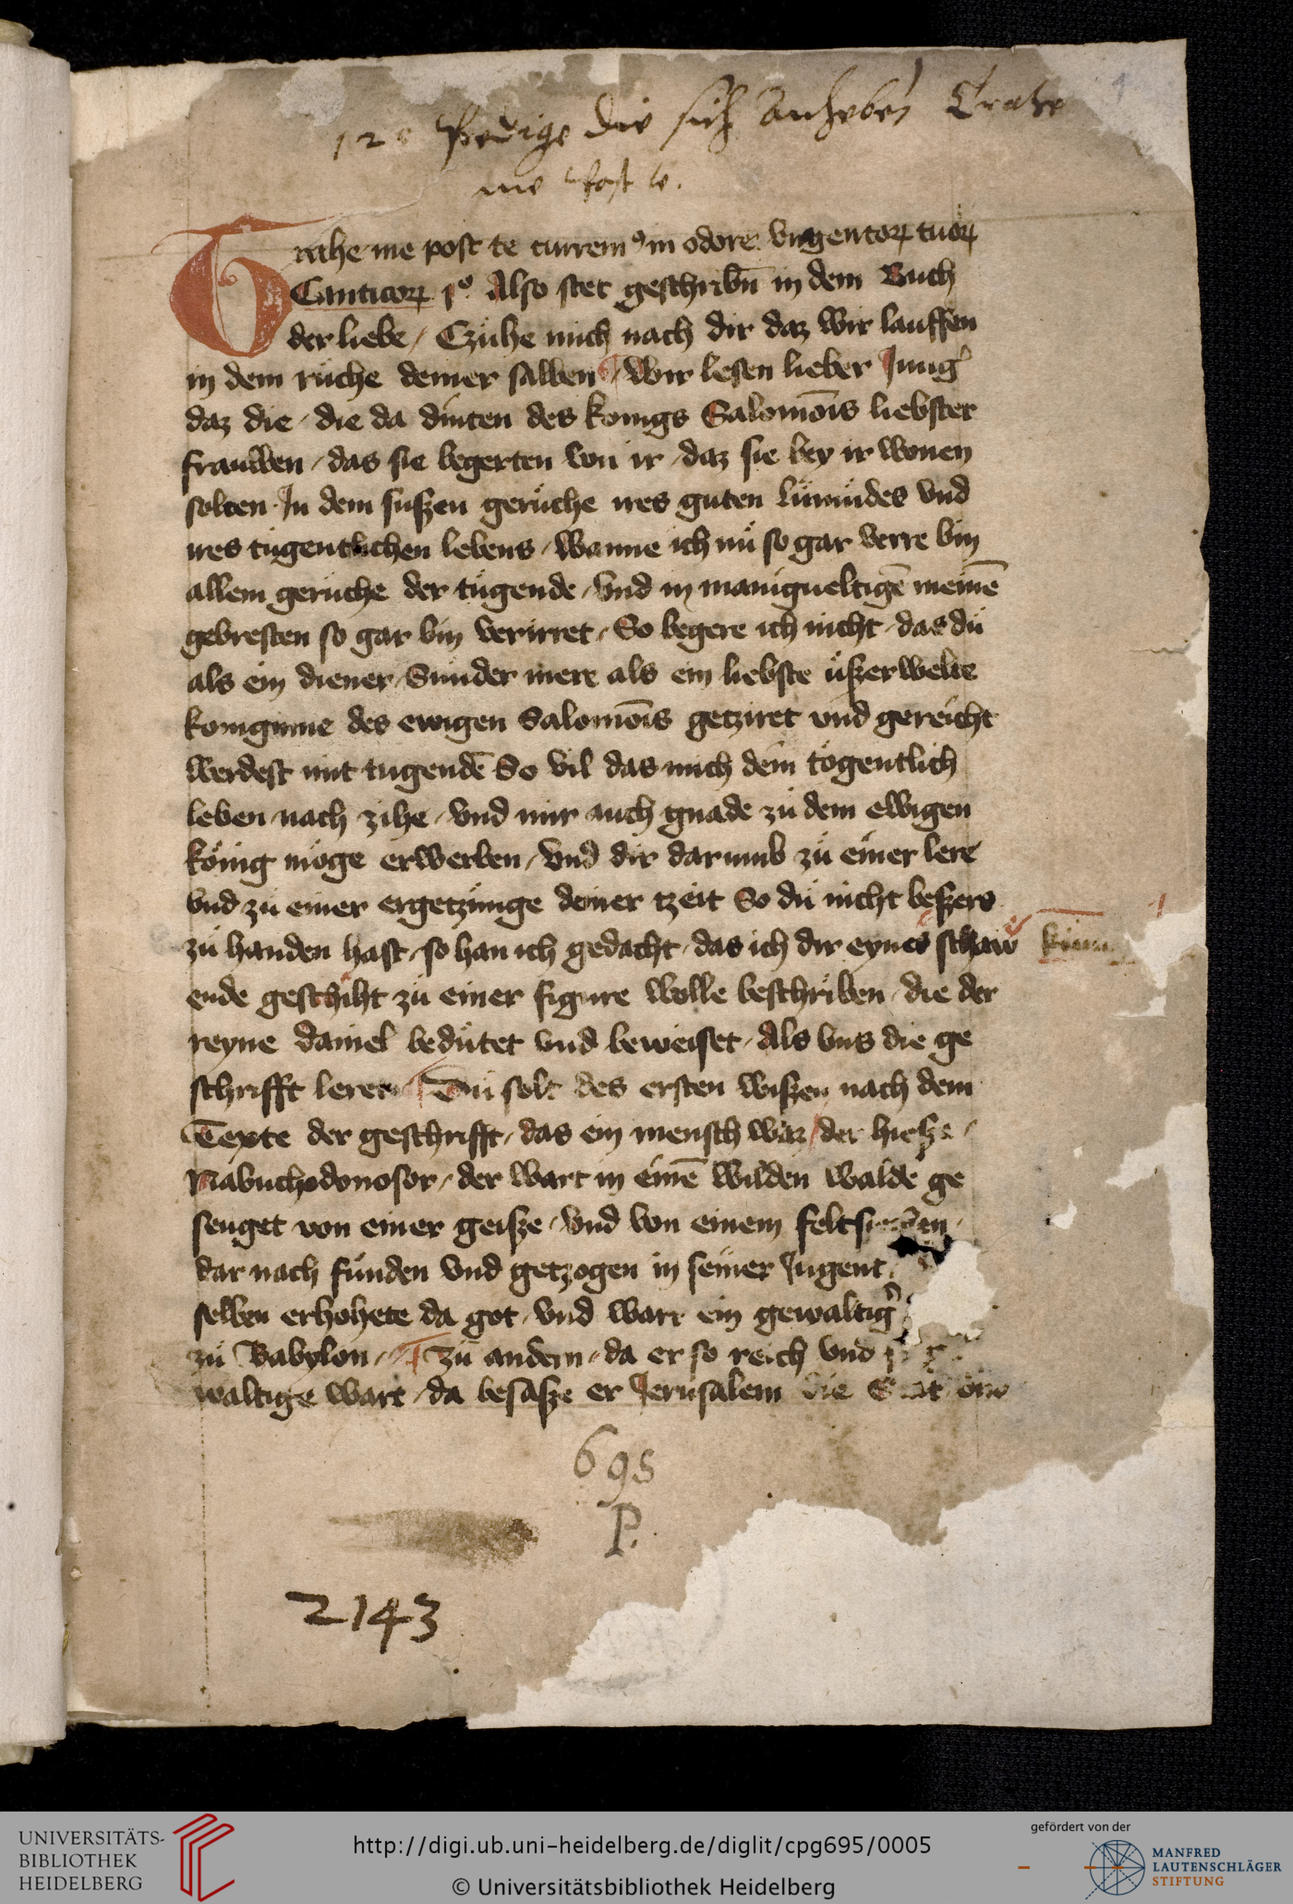 12 Predige die sich anheben Trahe
me post te.
Trahe me post te currem⁹ in odore vngentoꝝ tuoꝝ
Canticoꝝ pº. Also stet geschribn̄ in dem Buch
der liebe / Czuhe mich nach dir daz wir lauffen
in dem ruche deiner salben / Wir lesen lieber Jung
daz die / die da dinten des konigs Salomōis liebster
frauwen / das sie begerten von ir / daz sie bey ir wonen
solten In dem suszen geruche ires guten lumudes vnd
ires tugentlichen lebens / Wanne ich nu so gar verre bin
allem geruche der tugende / vnd in manigueltigē meinē
gebresten so gar bin verirret / So begere ich nicht / das du
als ein diener / Sunder mere als ein liebste uszerwelte
konginne des ewigen Salomōis getziret vnd gereicht
werdest mit tugendē So vil das mich dein togentlich
leben nach zihe / vnd mir auch gnade zu dem ewigen
konig moge erwerben / vnd dir darumb zu einer lere
vnd zu einer ergetzunge deiner tzeit So du nicht beszers
zu handen hast / so han ich gedacht / das ich dir eynes schaw
ende geschiht zu einer figure wolle beschriben / die der
reyne daniel bedutet vnd beweiset / Als vns die ge
schrifft leret Du solt des ersten wiszen nach dem
Texte der geschrifft / das ein mensch waz / der hiesze /
Nabuchodonosor / der wart in einē wilden walde ge
seuget von einer geisze / vnd von einem
dar nach funden vnd getzogen in seiner Jugent
selben erhohete da got / vnd wart ein gewaltig
zu Babylon / Zu andern / da er so reich vnd
waltige wart / da besasze er Jerusalem die Stat
695
P.
2143
UNIVERSITÄTS-
BIBLIOTHEK
HEIDELBERG
http://digi.ub.uni-heidelberg.de/diglit/cpg695/0005
© Universitätsbibliothek Heidelberg
gefördert von der
MANFRED
LAUTENSCHLÄGER
STIFTUNG